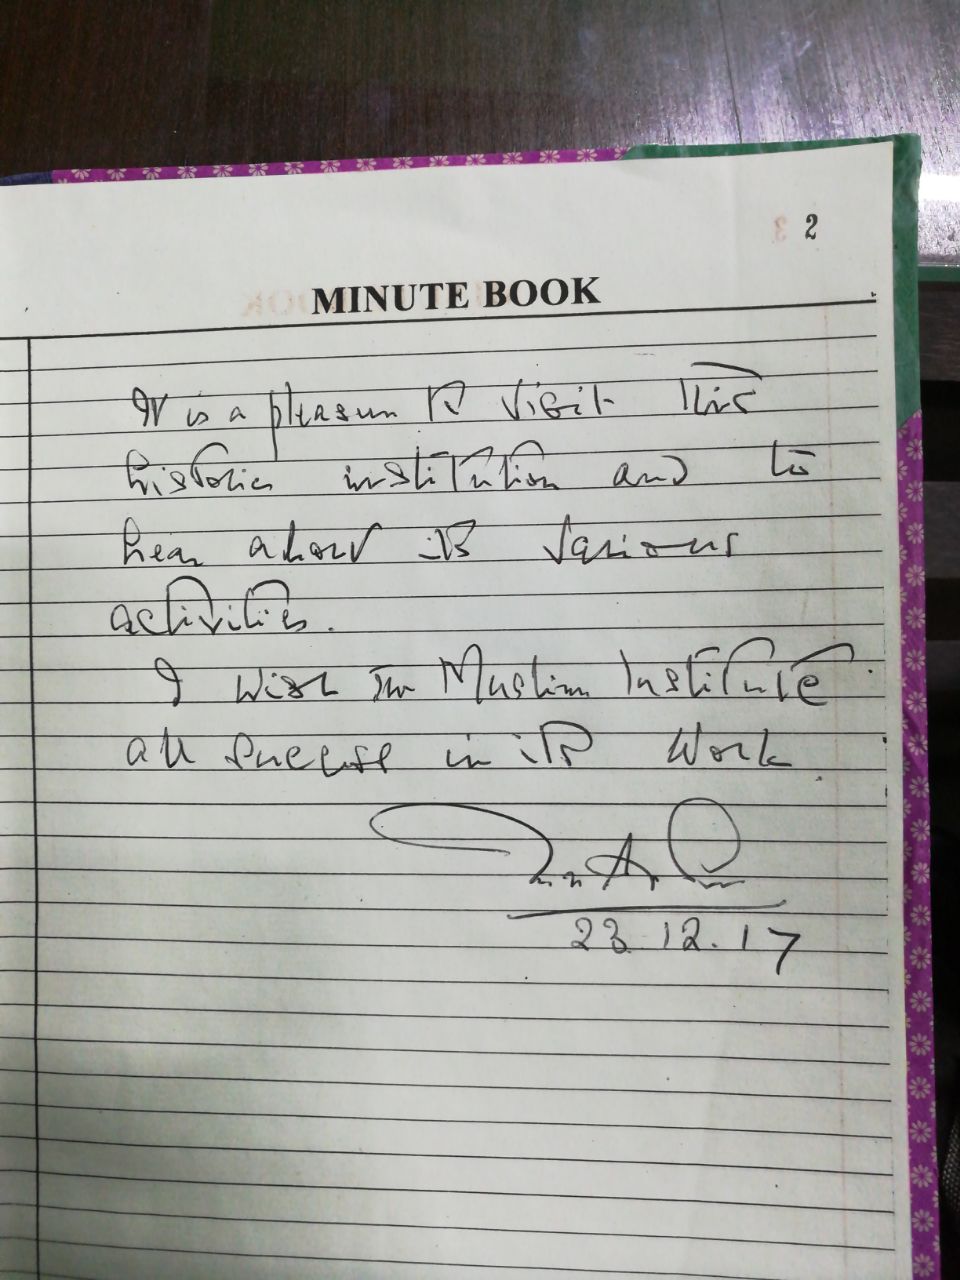 2
MINUTE BOOK
It is a pleasure to visit this
historic institution and to
hear about its various
activities.
I wish the Muslim Institute
all success in its work
23.12.17